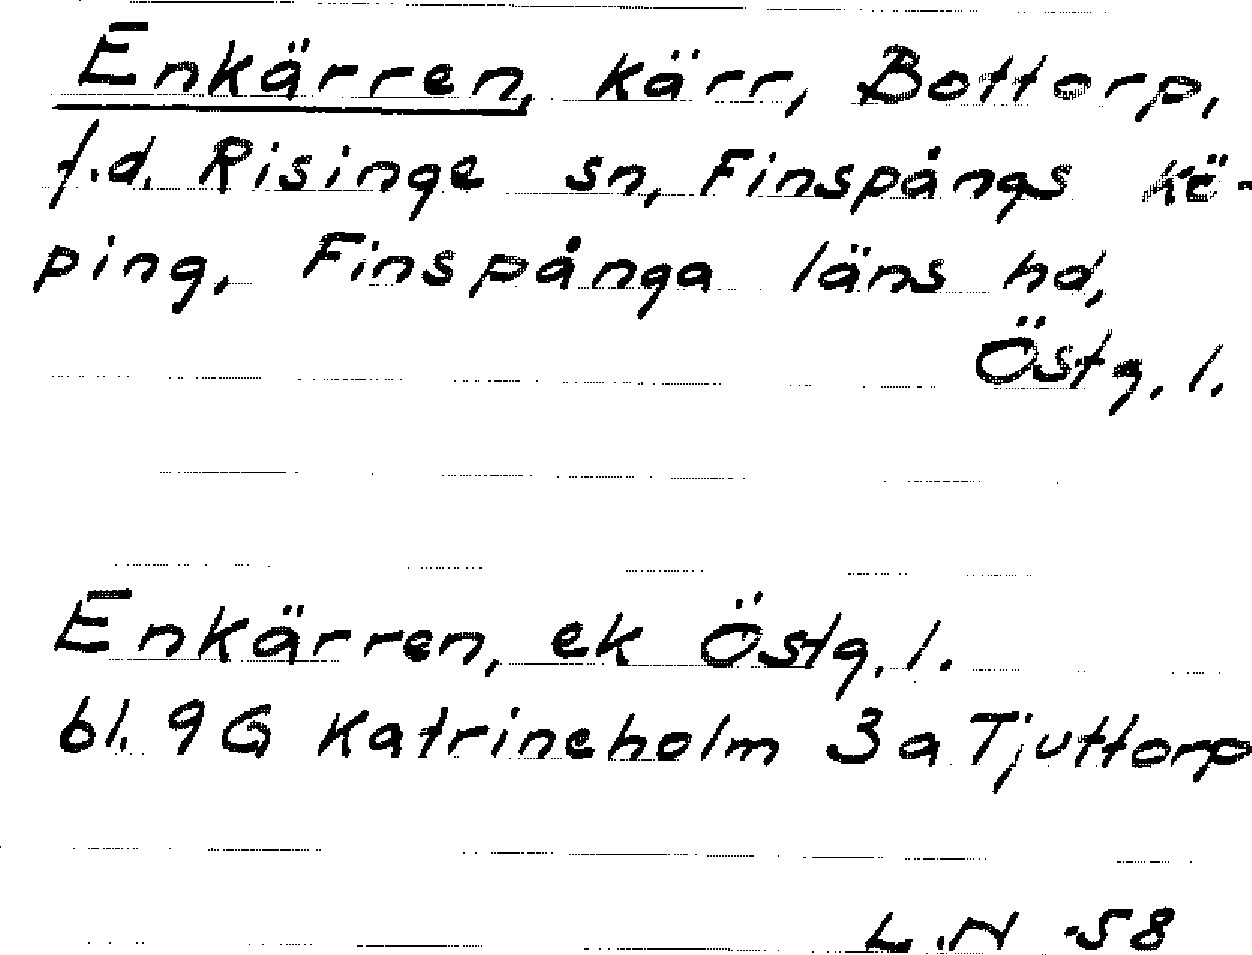 Enkärren, kärr, Bottorp,
f.d. Risinge sn, Finspångs kö-
ping, Finspånga läns hd,
Östg. l.
Enkärren, ek Östg. l.
bl. 9G Katrineholm 3a Tjuttorp
L.N -58